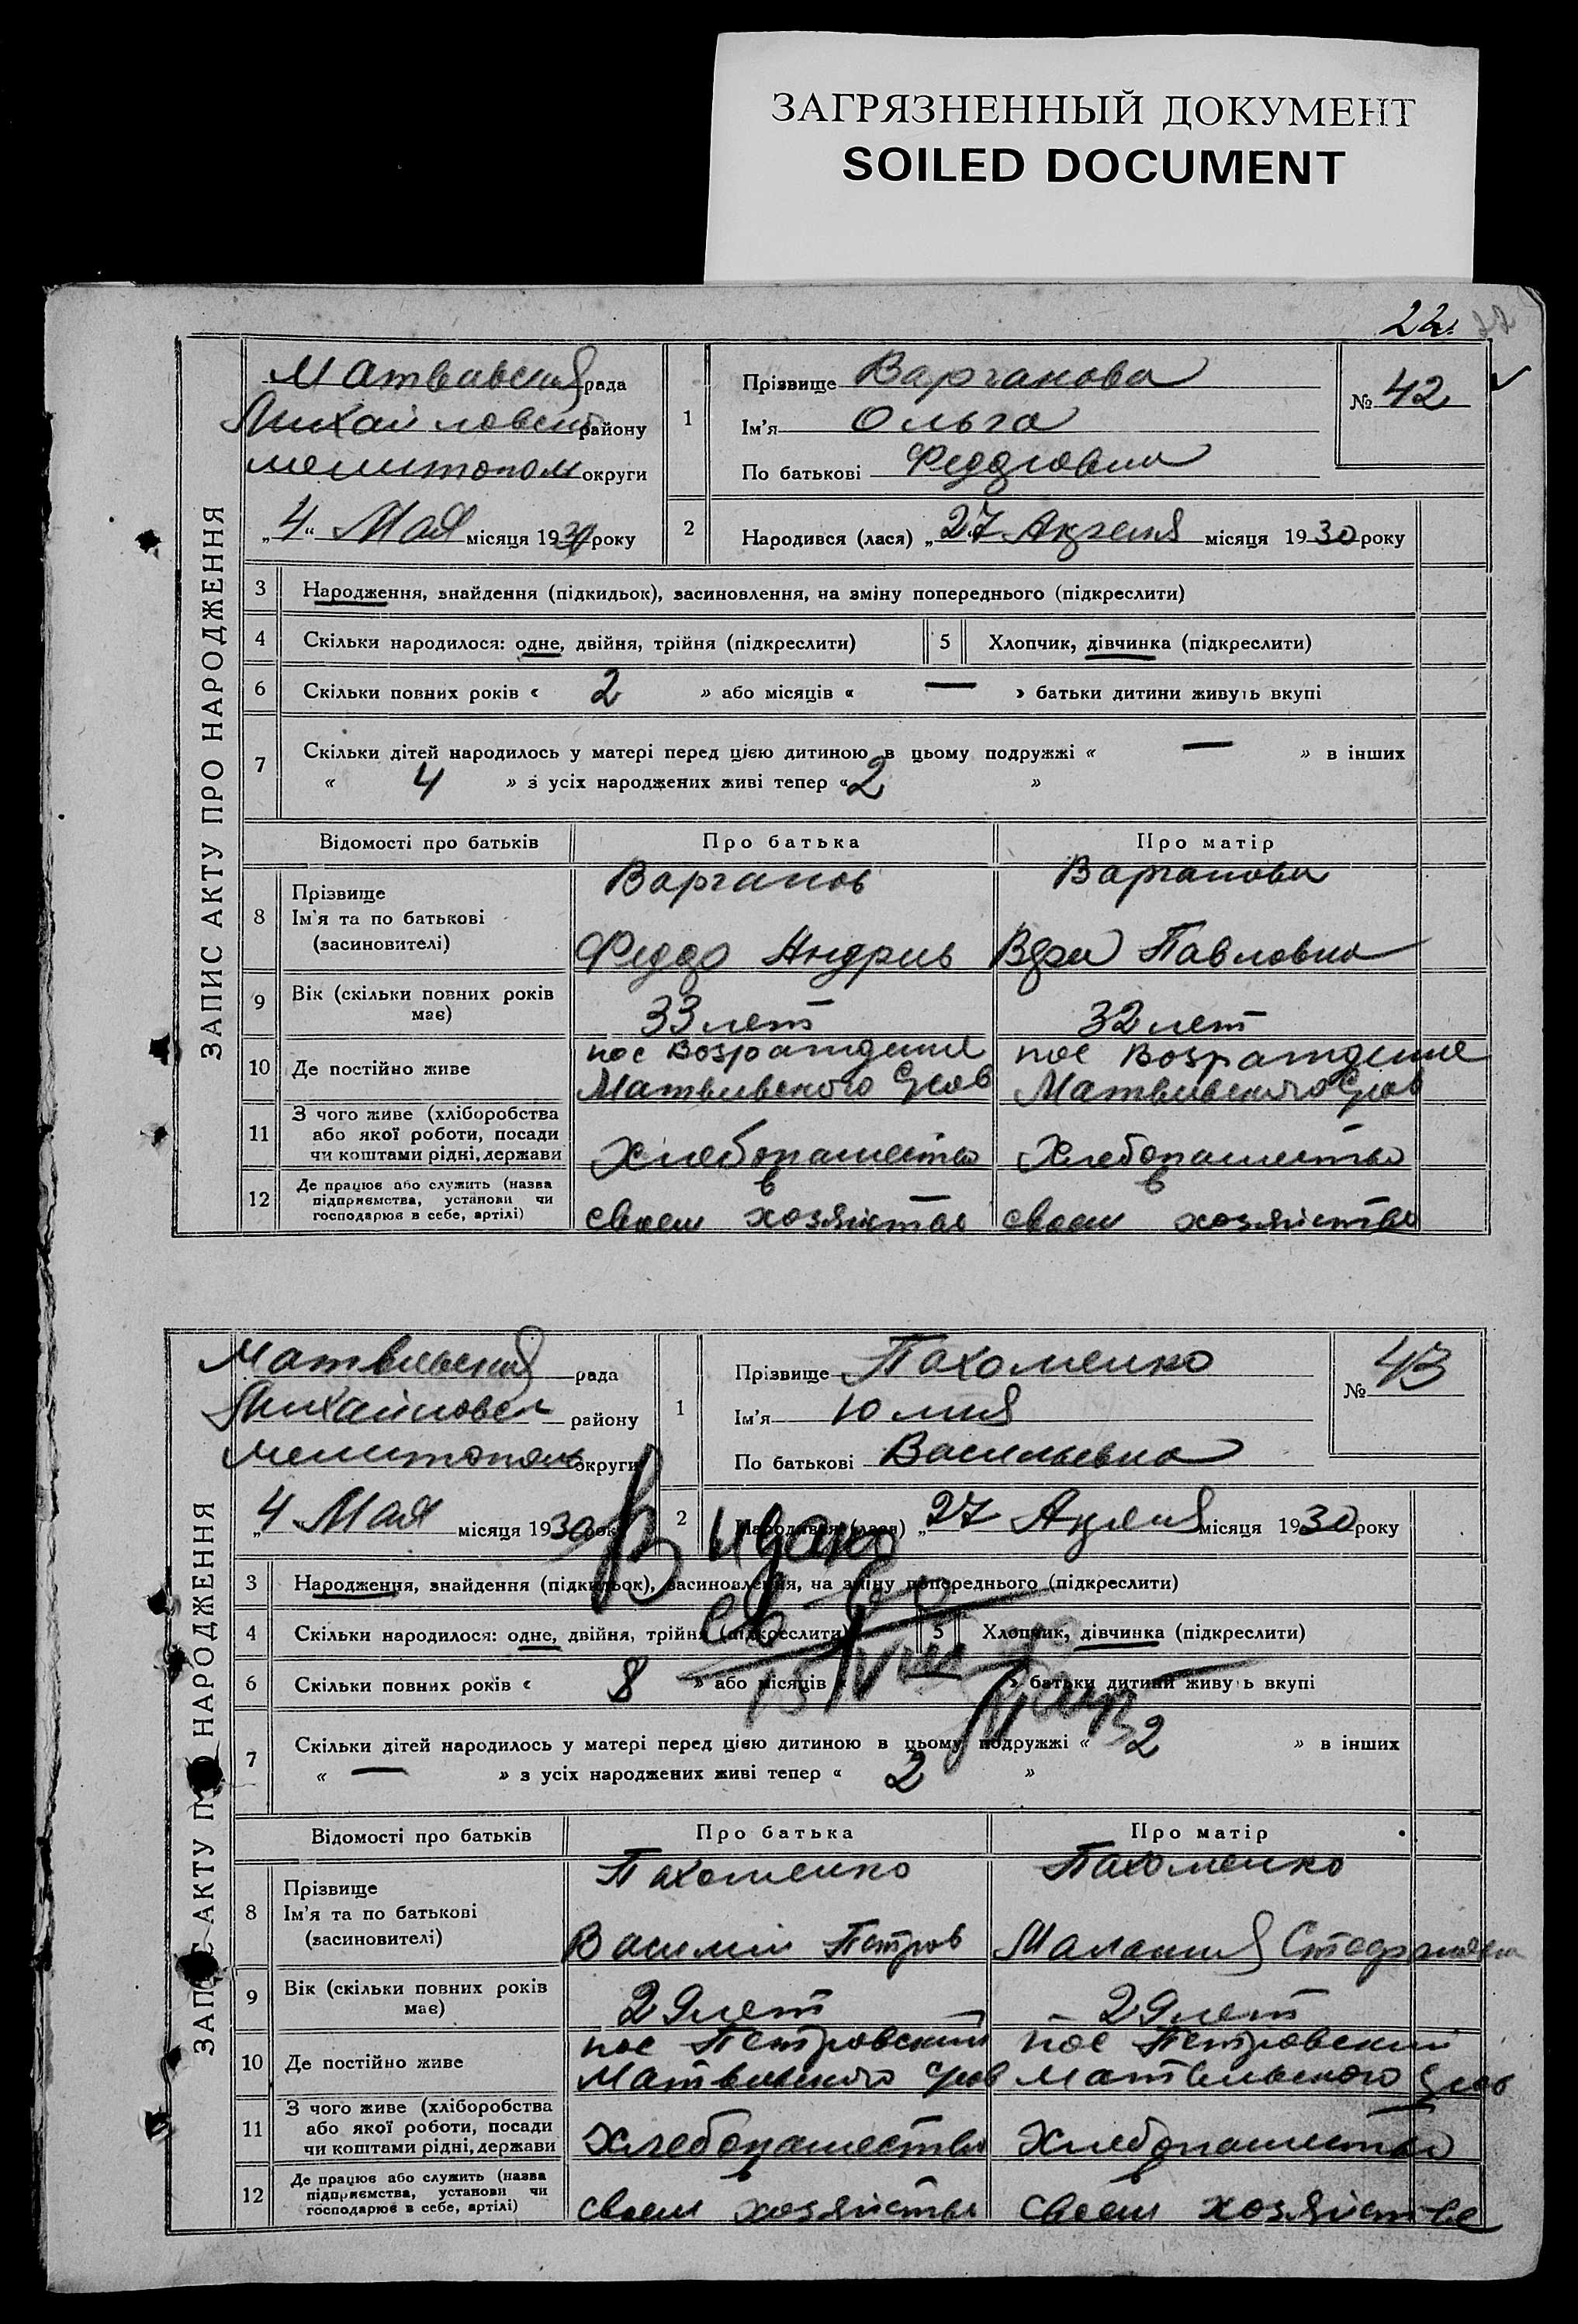 ЗАГРЯЗНЕННЫЙ ДОКУМЕНТ
SOILED DOCUMENT
22
ЗАПИС АКТУ ПРО НАРОДЖЕННЯ
Матвавския рада
Михайловск району
мелитопол округи
„4“ Мая місяця 1930 року
1
Прізвище Варганова
Ім'я Ольга
По батькові
№ 42
2
Народився (лася) „27 Апреля місяця 1930 року
3 Народження, знайдення (підкидьок), засиновлення, на зміну попереднього (підкреслити)
4 Скільки народилося: одне, двійня, трійня (підкреслити) 5 Хлопчик, дівчинка (підкреслити)
6 Скільки повних років « 2 » або місяців « — » батьки дитини живуть вкупі
7 Скільки дітей народилось у матері перед цією дитиною в цьому подружжі « — » в інших
« 4 » з усіх народжених живі тепер « 2 »
Відомості про батьків Про батька Про матір
8 Прізвище
Ім'я та по батькові
(засиновителі)
Варганов
Андрив
Варганова
Павловна
9 Вік (скільки повних років
має)
33 лет
32 лет
10 Де постійно живе
пос Возраждение
Матвивского
пос Возраждение
Матвивского
11 З чого живе (хліборобства
або якої роботи, посади
чи коштами рідні, держави
Хлебопашество
Хлебопашество
12 Де працює або служить (назва
підприємства, установи чи
господарює в себе, артілі)
в
своем хозяйстве
в
своем хозяйстве
ЗАПИС АКТУ ПРО НАРОДЖЕННЯ
Матвивский рада
Михайловск району
мелитополь округи
„4 Мая місяця 1930 року
1
Прізвище Пахоменко
Ім'я Юлия
По батькові Васильевна
№ 43
2
Народився (лася) „27 Апреля місяця 1930 року
3 Народження, знайдення (підкидьок), засиновлення, на зміну попереднього (підкреслити)
4 Скільки народилося: одне, двійня, трійня (підкреслити) 5 Хлопчик, дівчинка (підкреслити)
6 Скільки повних років « 8 » або місяців « — » батьки дитини живуть вкупі
Видано
св-во
15/VIII
7 Скільки дітей народилось у матері перед цією дитиною в цьому подружжі « 2 » в інших
« — » з усіх народжених живі тепер « 2 »
Відомості про батьків Про батька Про матір
8 Прізвище
Ім'я та по батькові
(засиновителі)
Пахоменко
Василий Петров
Пахоменко
Малания
9 Вік (скільки повних років
має)
29 лет
29 лет
10 Де постійно живе
пос Петровский
Матвивского
пос Петровский
Матвивского
11 З чого живе (хліборобства
або якої роботи, посади
чи коштами рідні, держави
Хлебопашество
Хлебопашество
12 Де працює або служить (назва
підприємства, установи чи
господарює в себе, артілі)
в
своем хозяйстве
в
своем хозяйстве